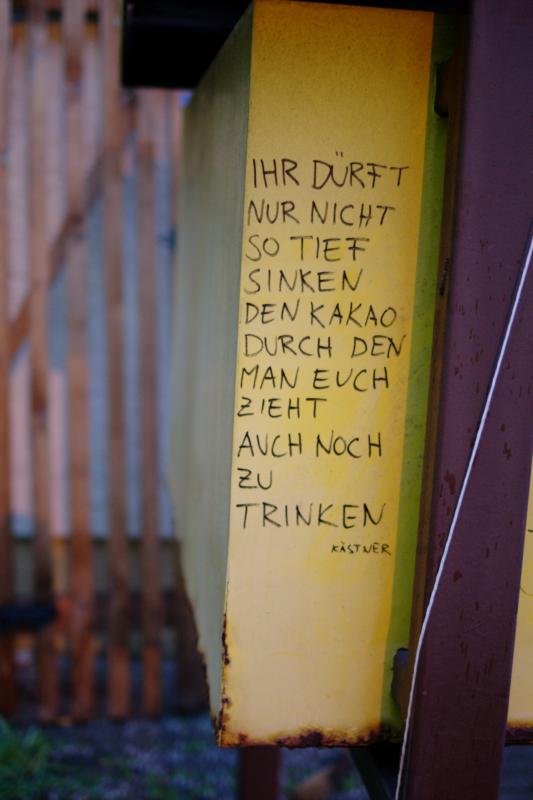 IHR DÜRFT
NUR NICHT
SO TIEF
SINKEN
DEN KAKAO
DURCH DEN
MAN EUCH
ZIEHT
AUCH NOCH
ZU
TRINKEN
KÄSTNER